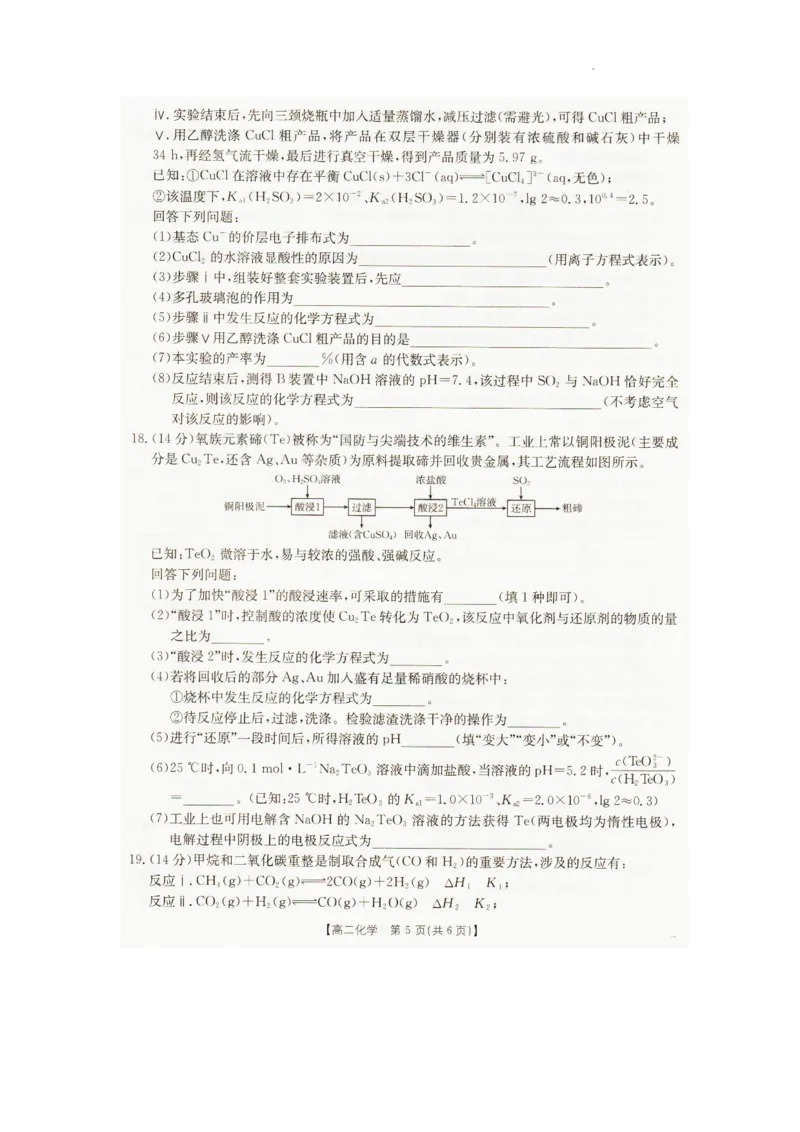 ⅳ.实验结束后,先向三颈烧瓶中加入适量蒸馏水,减压过滤(需避光),可得 CuCl 粗产品;
ⅴ.用乙醇洗涤 CuCl 粗产品,将产品在双层干燥器(分别装有浓硫酸和碱石灰)中干燥
34 h,再经氢气流干燥,最后进行真空干燥,得到产品质量为 5.97 g。
已知:①CuCl 在溶液中存在平衡 CuCl(s)+3Cl⁻(aq)⇌[CuCl₄]³⁻(aq,无色);
②该温度下,Kₐ₁(H₂SO₃)=2×10⁻²、Kₐ₂(H₂SO₃)=1.2×10⁻⁷,lg 2≈0.3,10⁰·⁴=2.5。
回答下列问题:
(1)基态 Cu⁻的价层电子排布式为________。
(2)CuCl₂ 的水溶液显酸性的原因为________(用离子方程式表示)。
(3)步骤ⅰ中,组装好整套实验装置后,先应________。
(4)多孔玻璃泡的作用为________。
(5)步骤ⅱ中发生反应的化学方程式为________。
(6)步骤ⅴ用乙醇洗涤 CuCl 粗产品的目的是________。
(7)本实验的产率为________%(用含 a 的代数式表示)。
(8)反应结束后,测得 B 装置中 NaOH 溶液的 pH=7.4,该过程中 SO₂ 与 NaOH 恰好完全
反应,则该反应的化学方程式为________(不考虑空气
对该反应的影响)。
18.(14 分)氧族元素碲(Te)被称为“国防与尖端技术的维生素”。工业上常以铜阳极泥(主要成
分是 Cu₂Te,还含 Ag、Au 等杂质)为原料提取碲并回收贵金属,其工艺流程如图所示。
O₂、H₂SO₄溶液 浓盐酸 SO₂
铜阳极泥 酸浸1 过滤 酸浸2 TeCl₄溶液 还原 粗碲
滤液(含CuSO₄) 回收Ag、Au
已知:TeO₂ 微溶于水,易与较浓的强酸、强碱反应。
回答下列问题:
(1)为了加快“酸浸 1”的酸浸速率,可采取的措施有________(填 1 种即可)。
(2)“酸浸 1”时,控制酸的浓度使 Cu₂Te 转化为 TeO₂,该反应中氧化剂与还原剂的物质的量
之比为________。
(3)“酸浸 2”时,发生反应的化学方程式为________。
(4)若将回收后的部分 Ag、Au 加入盛有足量稀硝酸的烧杯中:
①烧杯中发生反应的化学方程式为________。
②待反应停止后,过滤,洗涤。检验滤渣洗涤干净的操作为________。
(5)进行“还原”一段时间后,所得溶液的 pH________(填“变大”“变小”或“不变”)。
(6)25 ℃时,向 0.1 mol·L⁻¹ Na₂TeO₃ 溶液中滴加盐酸,当溶液的 pH=5.2 时,c(TeO₃²⁻)/c(H₂TeO₃)
=________。(已知:25 ℃时,H₂TeO₃ 的 Kₐ₁=1.0×10⁻³、Kₐ₂=2.0×10⁻⁸,lg 2≈0.3)
(7)工业上也可用电解含 NaOH 的 Na₂TeO₃ 溶液的方法获得 Te(两电极均为惰性电极),
电解过程中阴极上的电极反应式为________。
19.(14 分)甲烷和二氧化碳重整是制取合成气(CO 和 H₂)的重要方法,涉及的反应有:
反应ⅰ.CH₄(g)+CO₂(g)⇌2CO(g)+2H₂(g) ΔH₁ K₁;
反应ⅱ.CO₂(g)+H₂(g)⇌CO(g)+H₂O(g) ΔH₂ K₂;
【高二化学 第 5 页(共 6 页)】